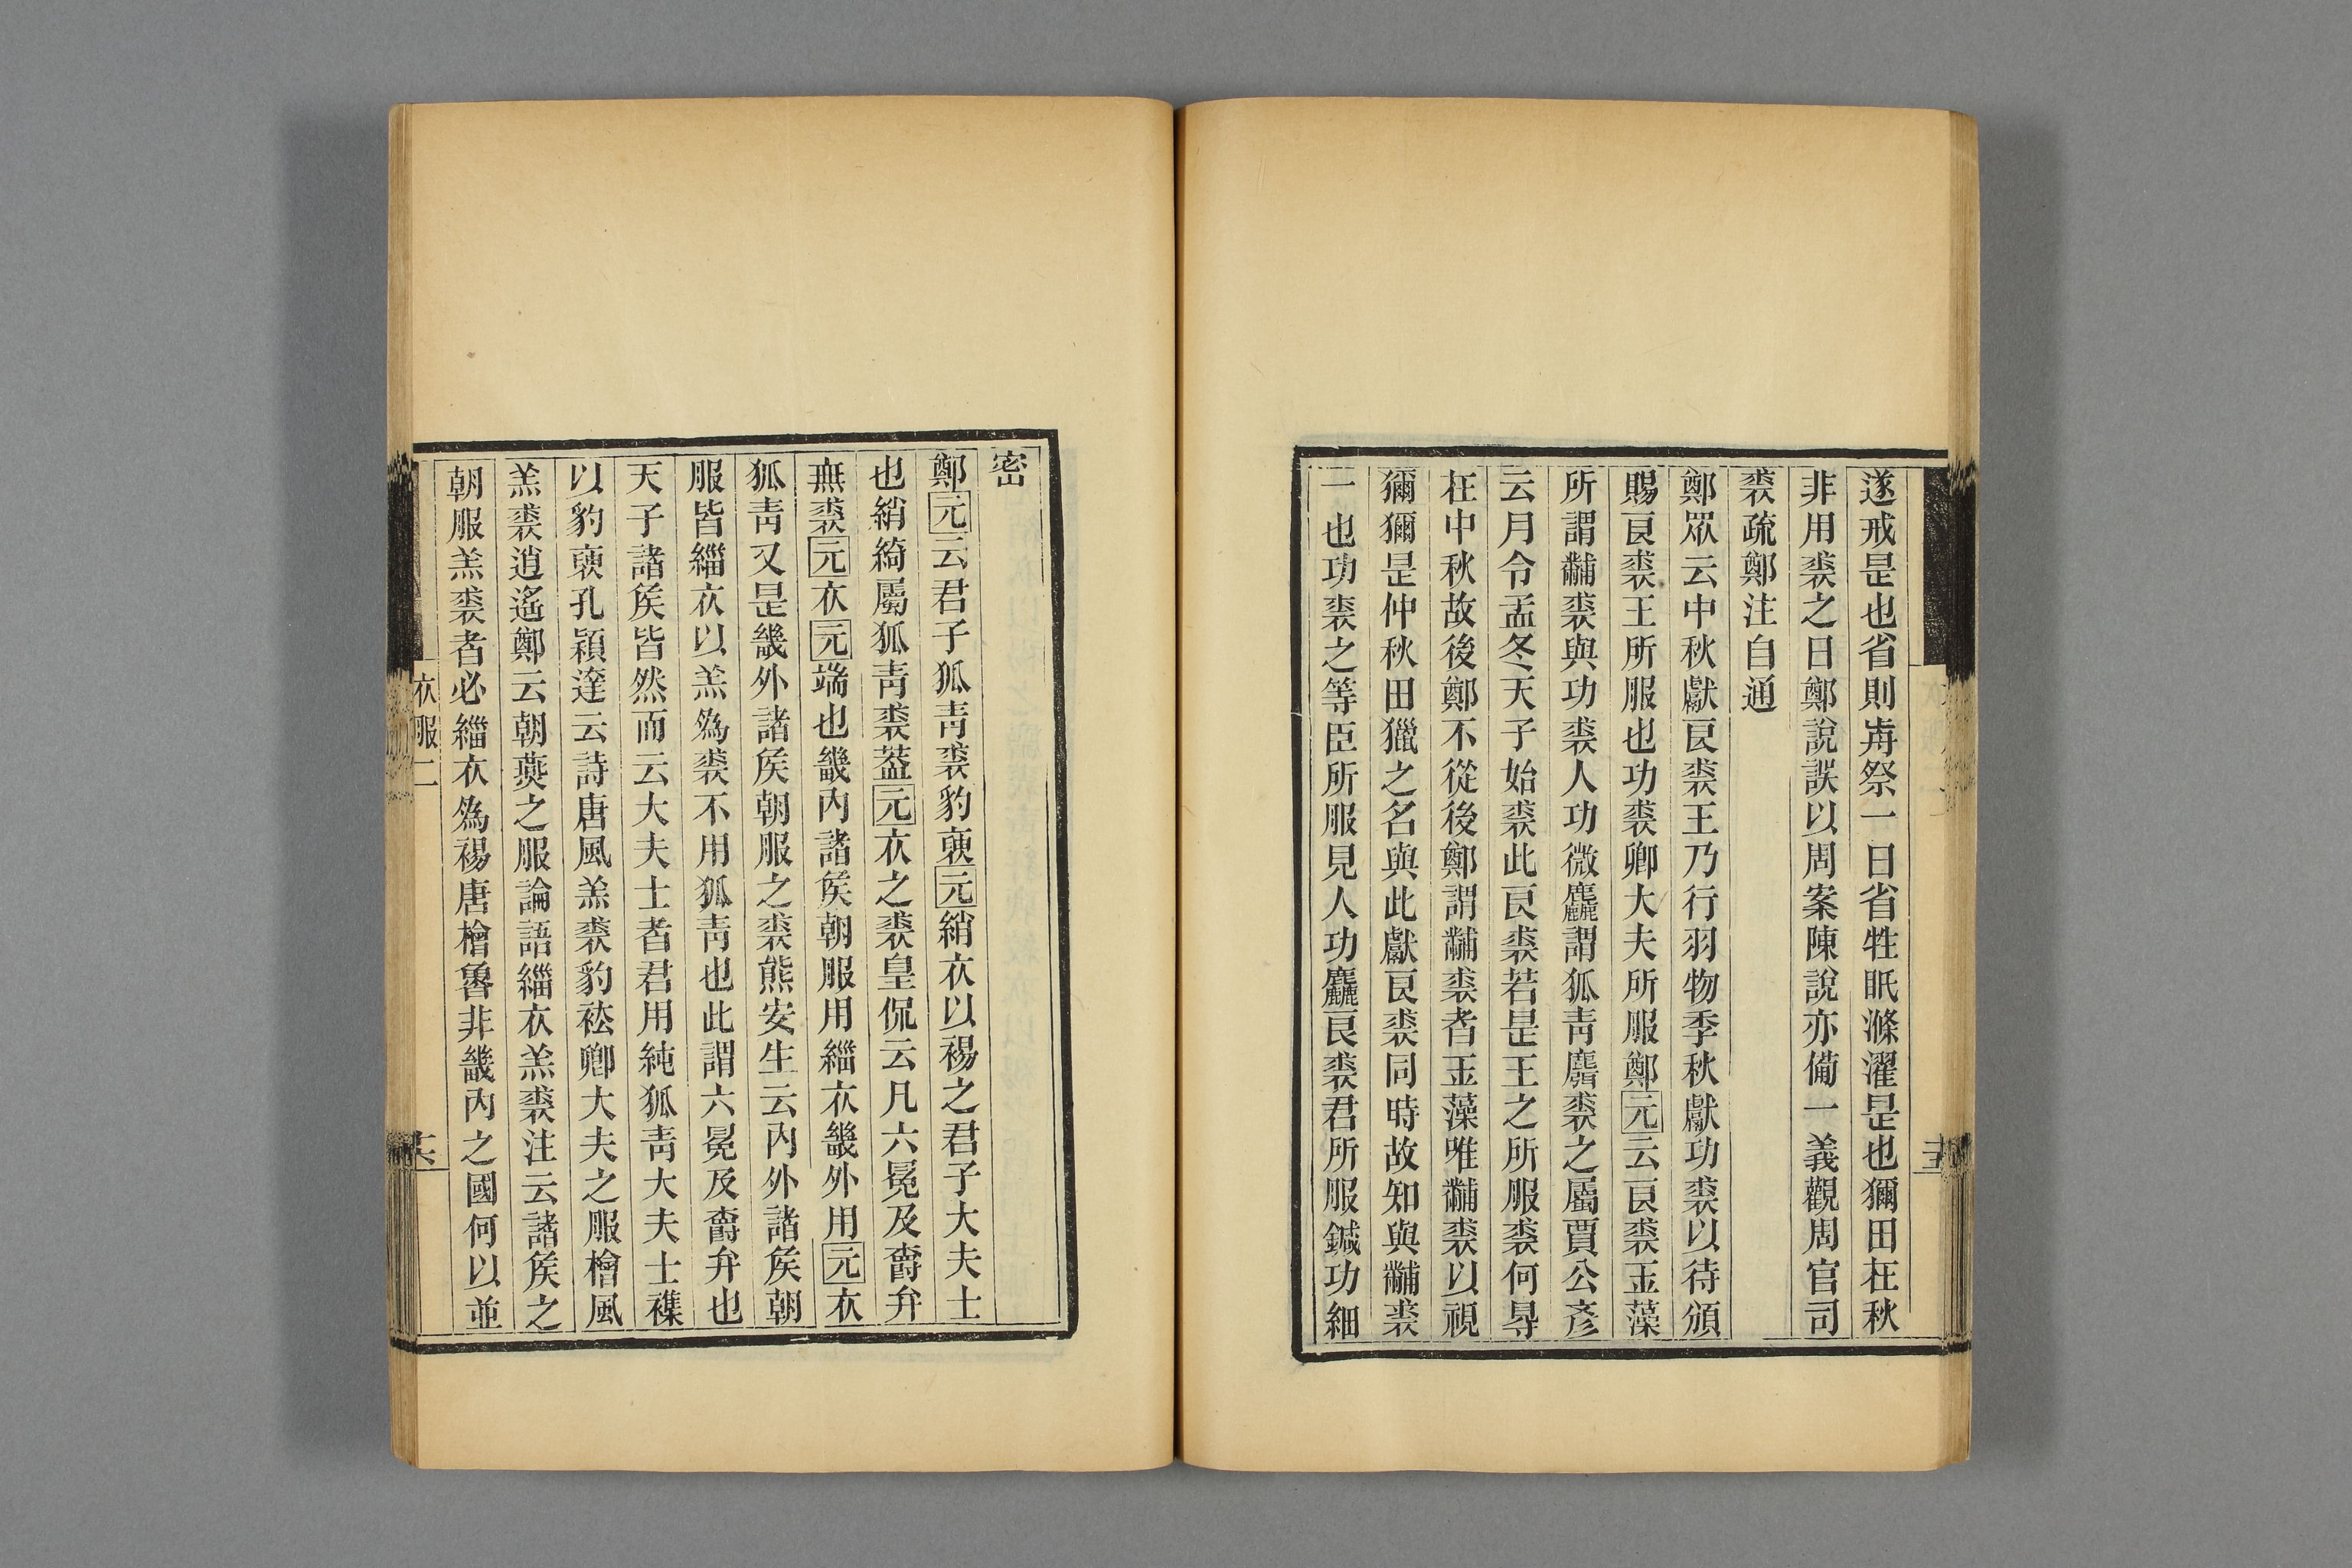 遂戒是也省則歬祭一日省牲眂滌濯是也獮田在秋
非用裘之日鄭說誤以周案陳說亦備一義觀周官司
裘疏鄭注自通
鄭眾云中秋獻良裘王乃行羽物季秋獻功裘以待頒
賜良裘王所服也功裘卿大夫所服鄭元云良裘玉藻
所謂黼裘與功裘人功微麤謂狐青麛裘之屬賈公彥
云月令孟冬天子始裘此良裘若是王之所服裘何㝵
在中秋故後鄭不從後鄭謂黼裘者玉藻唯黼裘以視
獮獮是仲秋田獵之名與此獻良裘同時故知與黼裘
一也功裘之等臣所服見人功麤良裘君所服鍼功細
密
鄭元云君子狐青裘豹褎元綃衣以裼之君子大夫士
也綃綺屬狐青裘葢元衣之裘皇侃云凡六冕及爵弁
無裘元衣元端也畿內諸侯朝服用緇衣畿外用元衣
狐青又是畿外諸侯朝服之裘熊安生云內外諸侯朝
服皆緇衣以羔為裘不用狐青也此謂六冕及爵弁也
天子諸侯皆然而云大夫士者君用純狐青大夫士襍
以豹褎孔穎達云詩唐風羔裘豹袪卿大夫之服檜風
羔裘逍遙鄭云朝燕之服論語緇衣羔裘注云諸侯之
朝服羔裘者必緇衣為裼唐檜魯非畿內之國何以並
衣服二